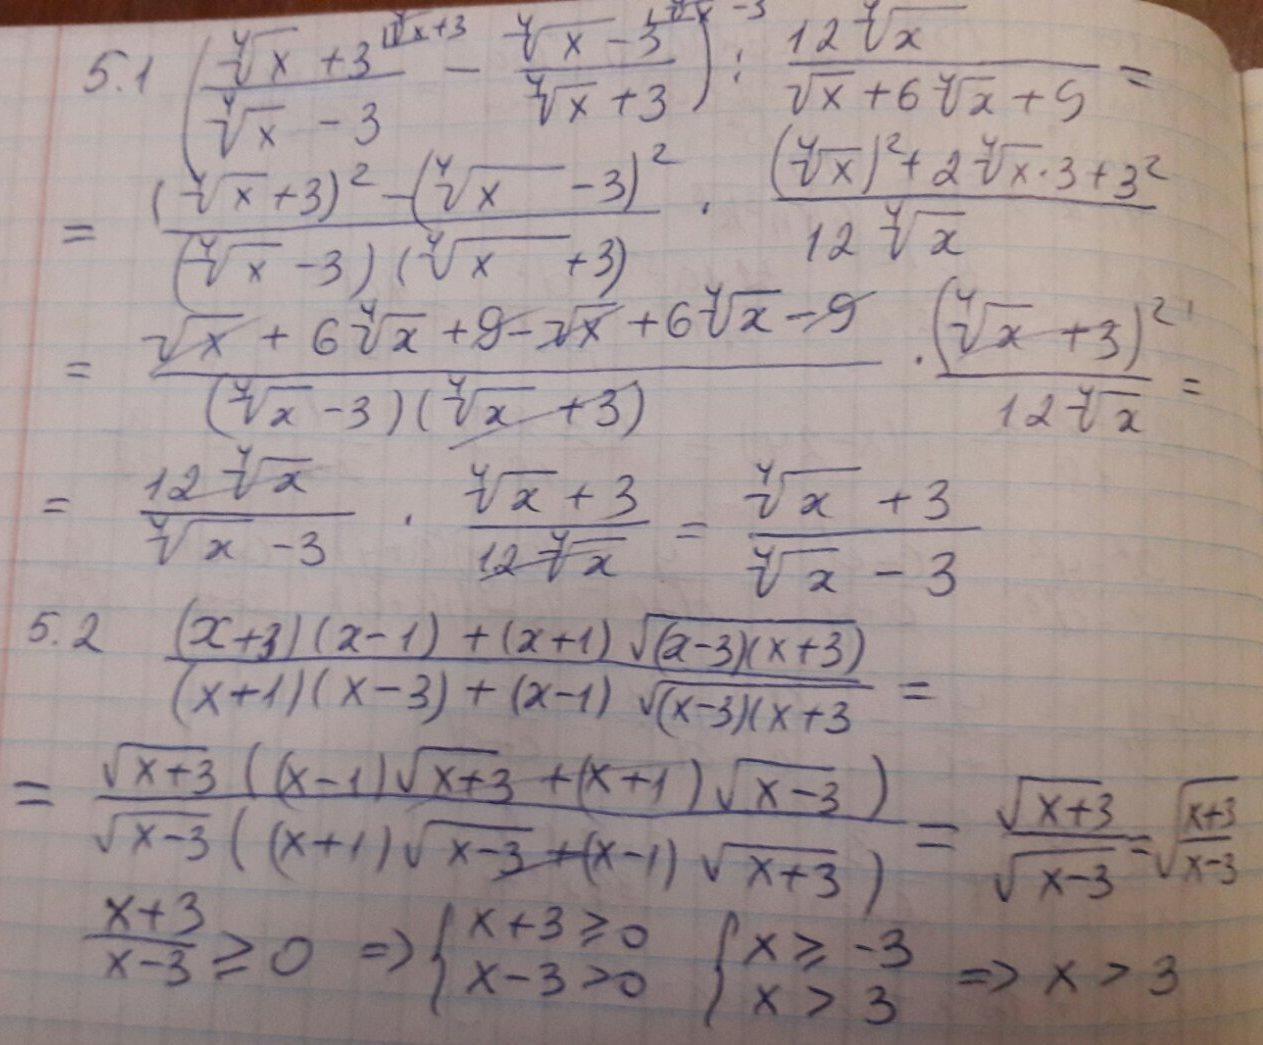 5.1 ( (∜x + 3)^(∜x+3) / (∜x - 3) - (∜x - 3)^(∜x-3) / (∜x + 3) ) : 12∜x / (√x + 6∜x + 9) =
= ((∜x + 3)² - (∜x - 3)²) / ((∜x - 3)(∜x + 3)) · ((∜x)² + 2∜x·3 + 3²) / (12∜x)
= (√x + 6∜x + 9 - √x + 6∜x - 9) / ((∜x - 3)(∜x + 3)) · (∜x + 3)² / (12∜x) =
= 12∜x / (∜x - 3) · (∜x + 3) / (12∜x) = (∜x + 3) / (∜x - 3)
5.2 ((x+3)(x-1) + (x+1)√((x-3)(x+3))) / ((x+1)(x-3) + (x-1)√((x-3)(x+3) =
= √(x+3) ((x-1)√(x+3) + (x+1)√(x-3)) / √(x-3) ((x+1)√(x-3) + (x-1)√(x+3)) = √(x+3) / √(x-3) = √((x+3)/(x-3))
(x+3)/(x-3) ≥ 0 => { x+3 ≥ 0 x-3 > 0 { x ≥ -3 x > 3 => x > 3